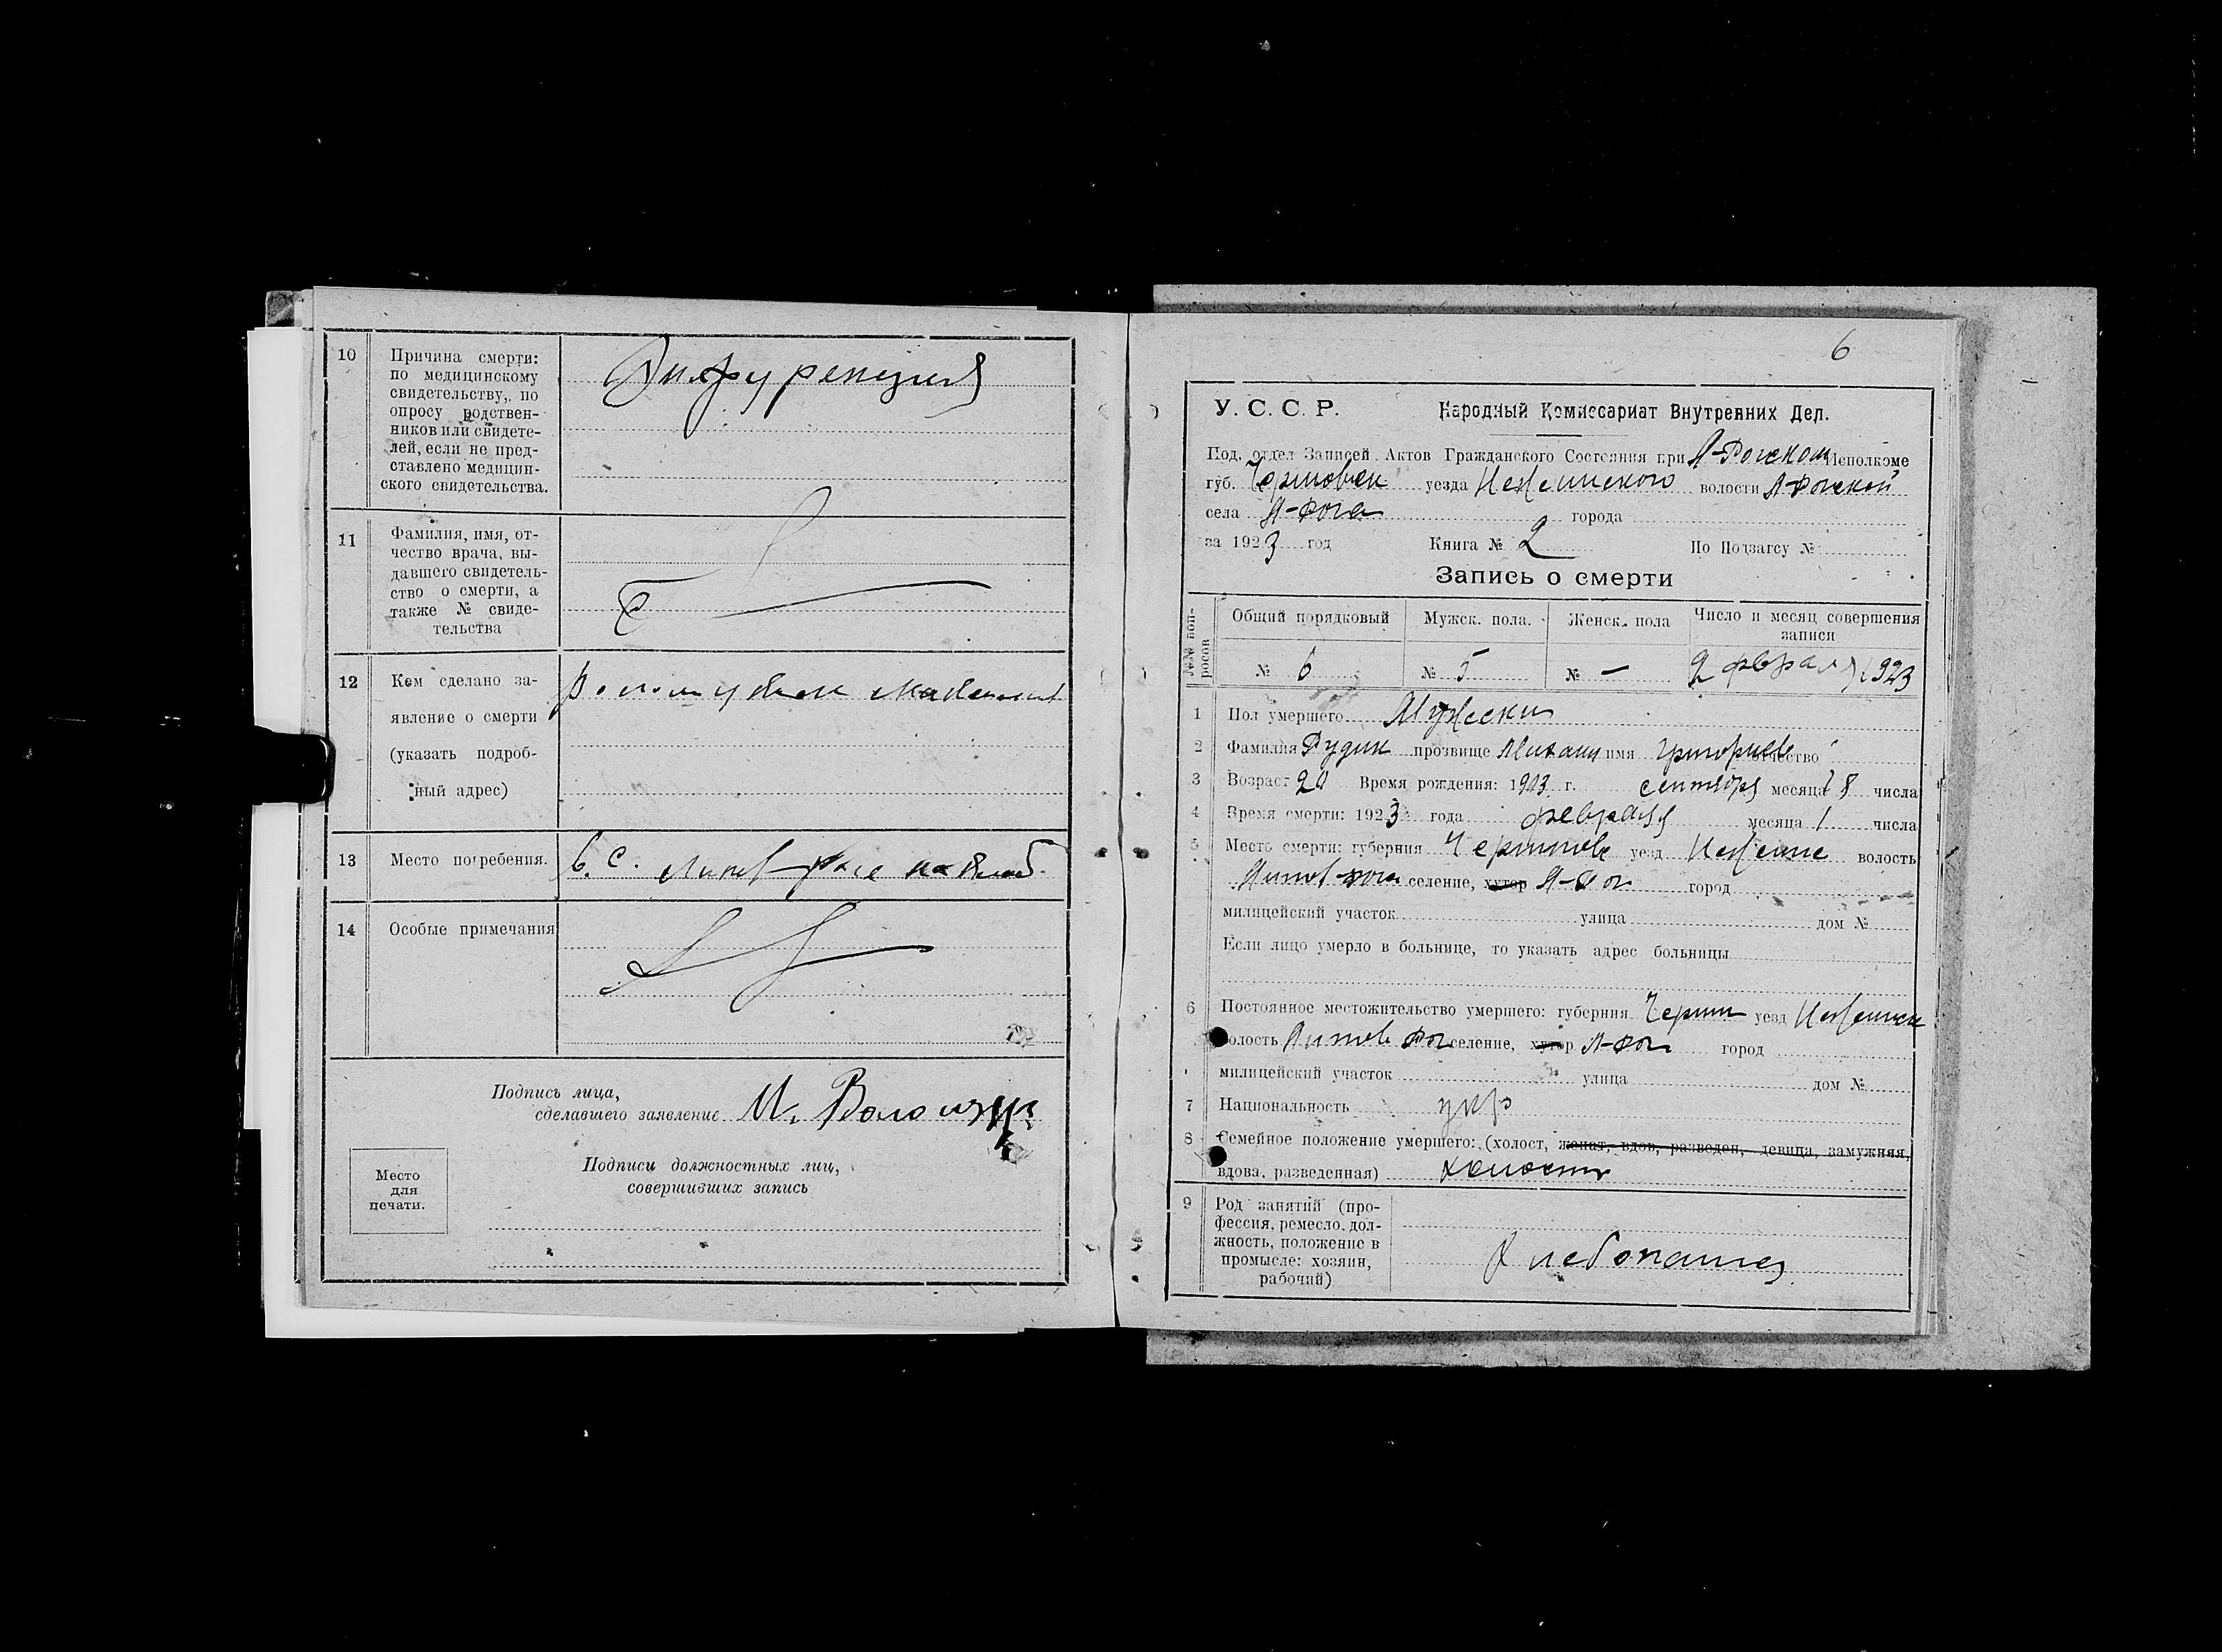 10 Причина смерти:
по медицинскому
свидетельству, по
опросу родствен-
ников или свидете-
лей, если не пред-
ставлено медицин-
ского свидетельства.
11 Фамилия, имя, от-
чество врача, вы-
давшего свидетель-
ство о смерти, а
также № свиде-
тельства
12 Кем сделано за-
явление о смерти
(указать подроб-
ный адрес)
13 Место погребения. в. с.
14 Особые примечания
Подпись лица,
сделавшего заявление И.
Подписи должностных лиц,
совершивших запись
Место
для
печати.
6
У. С. С. Р. Народный Комиссариат Внутренних Дел.
Под. отдел Записей Актов Гражданского Состояния при Л-Рогском Исполкоме
губ. уезда Неженского волости Л-Рогской
села Л-Рога города
за 1923 год Книга № 2 По Подзагсу №
Запись о смерти
№№ воп-
росов
Общий порядковый Мужск. пола. Женск. пола Число и месяц совершения
записи
№ 6 № 5 № — 2 февраля 1923
1 Пол умершего Мужески
2 Фамилия Рудик прозвище Михаил имя Григориев отчество
3 Возраст 20 Время рождения: 1903 г. сентября месяца 8 числа
4 Время смерти: 1923 года февраля месяца 1 числа
5 Место смерти: губерния Чернигов уезд Нежине волость
Липов-Рога селение, хутор Л-Рог город
милицейский участок улица дом №
Если лицо умерло в больнице, то указать адрес больницы
6 Постоянное местожительство умершего: губерния Черниг уезд Неженск
волость Липов Рог селение, хутор Л-Рог город
милицейский участок улица дом №
7 Национальность укр
8 Семейное положение умершего: (холост, женат, вдов, разведен, девица, замужняя,
вдова, разведенная) холост
9 Род занятий (про-
фессия, ремесло, дол-
жность, положение в
промысле: хозяин,
рабочий)
Хлебопашец